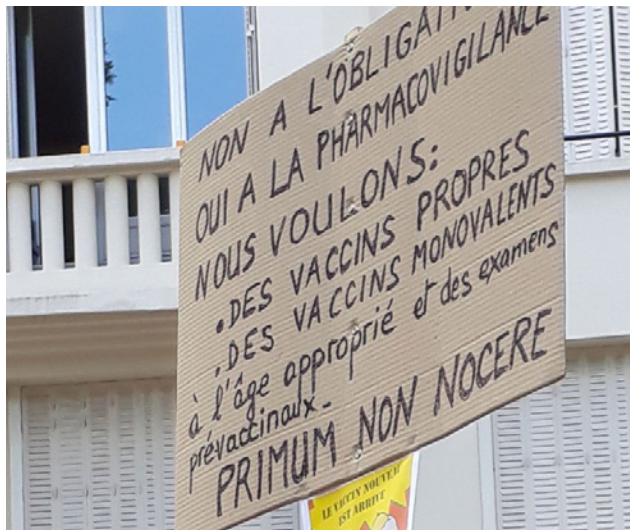 NON A L'OBLIGATI
OUI A LA PHARMACOVIGILANCE
NOUS VOULONS:
.DES VACCINS PROPRES
.DES VACCINS MONOVALENTS
à l'âge approprié et des examens
prévaccinaux-
PRIMUM NON NOCERE
LE VACCIN NOUVEAU
EST ARRIVÉ